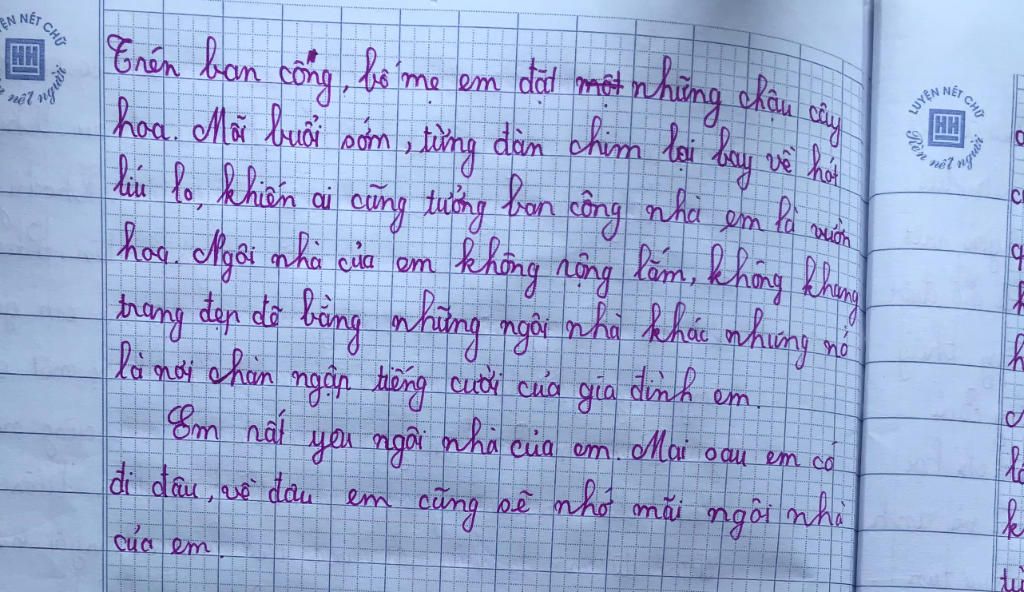 Trên ban công, bố mẹ em đặt một những chậu cây
hoa. Mỗi buổi sớm, từng đàn chim lại bay về hót
líu lo, khiến ai cũng tưởng ban công nhà em là vườn
hoa. Ngôi nhà của em không rộng lắm, không khang
trang đẹp đẽ bằng những ngôi nhà khác nhưng nó
là nơi chàn ngập tiếng cười của gia đình em.
Em rất yêu ngôi nhà của em. Mai sau em có
đi đâu, về đâu em cũng sẽ nhớ mãi ngôi nhà
của em.
LUYỆN NÉT CHỮ
HH
Rèn nết người
YỆN NÉT CHỮ
HH
n nết người